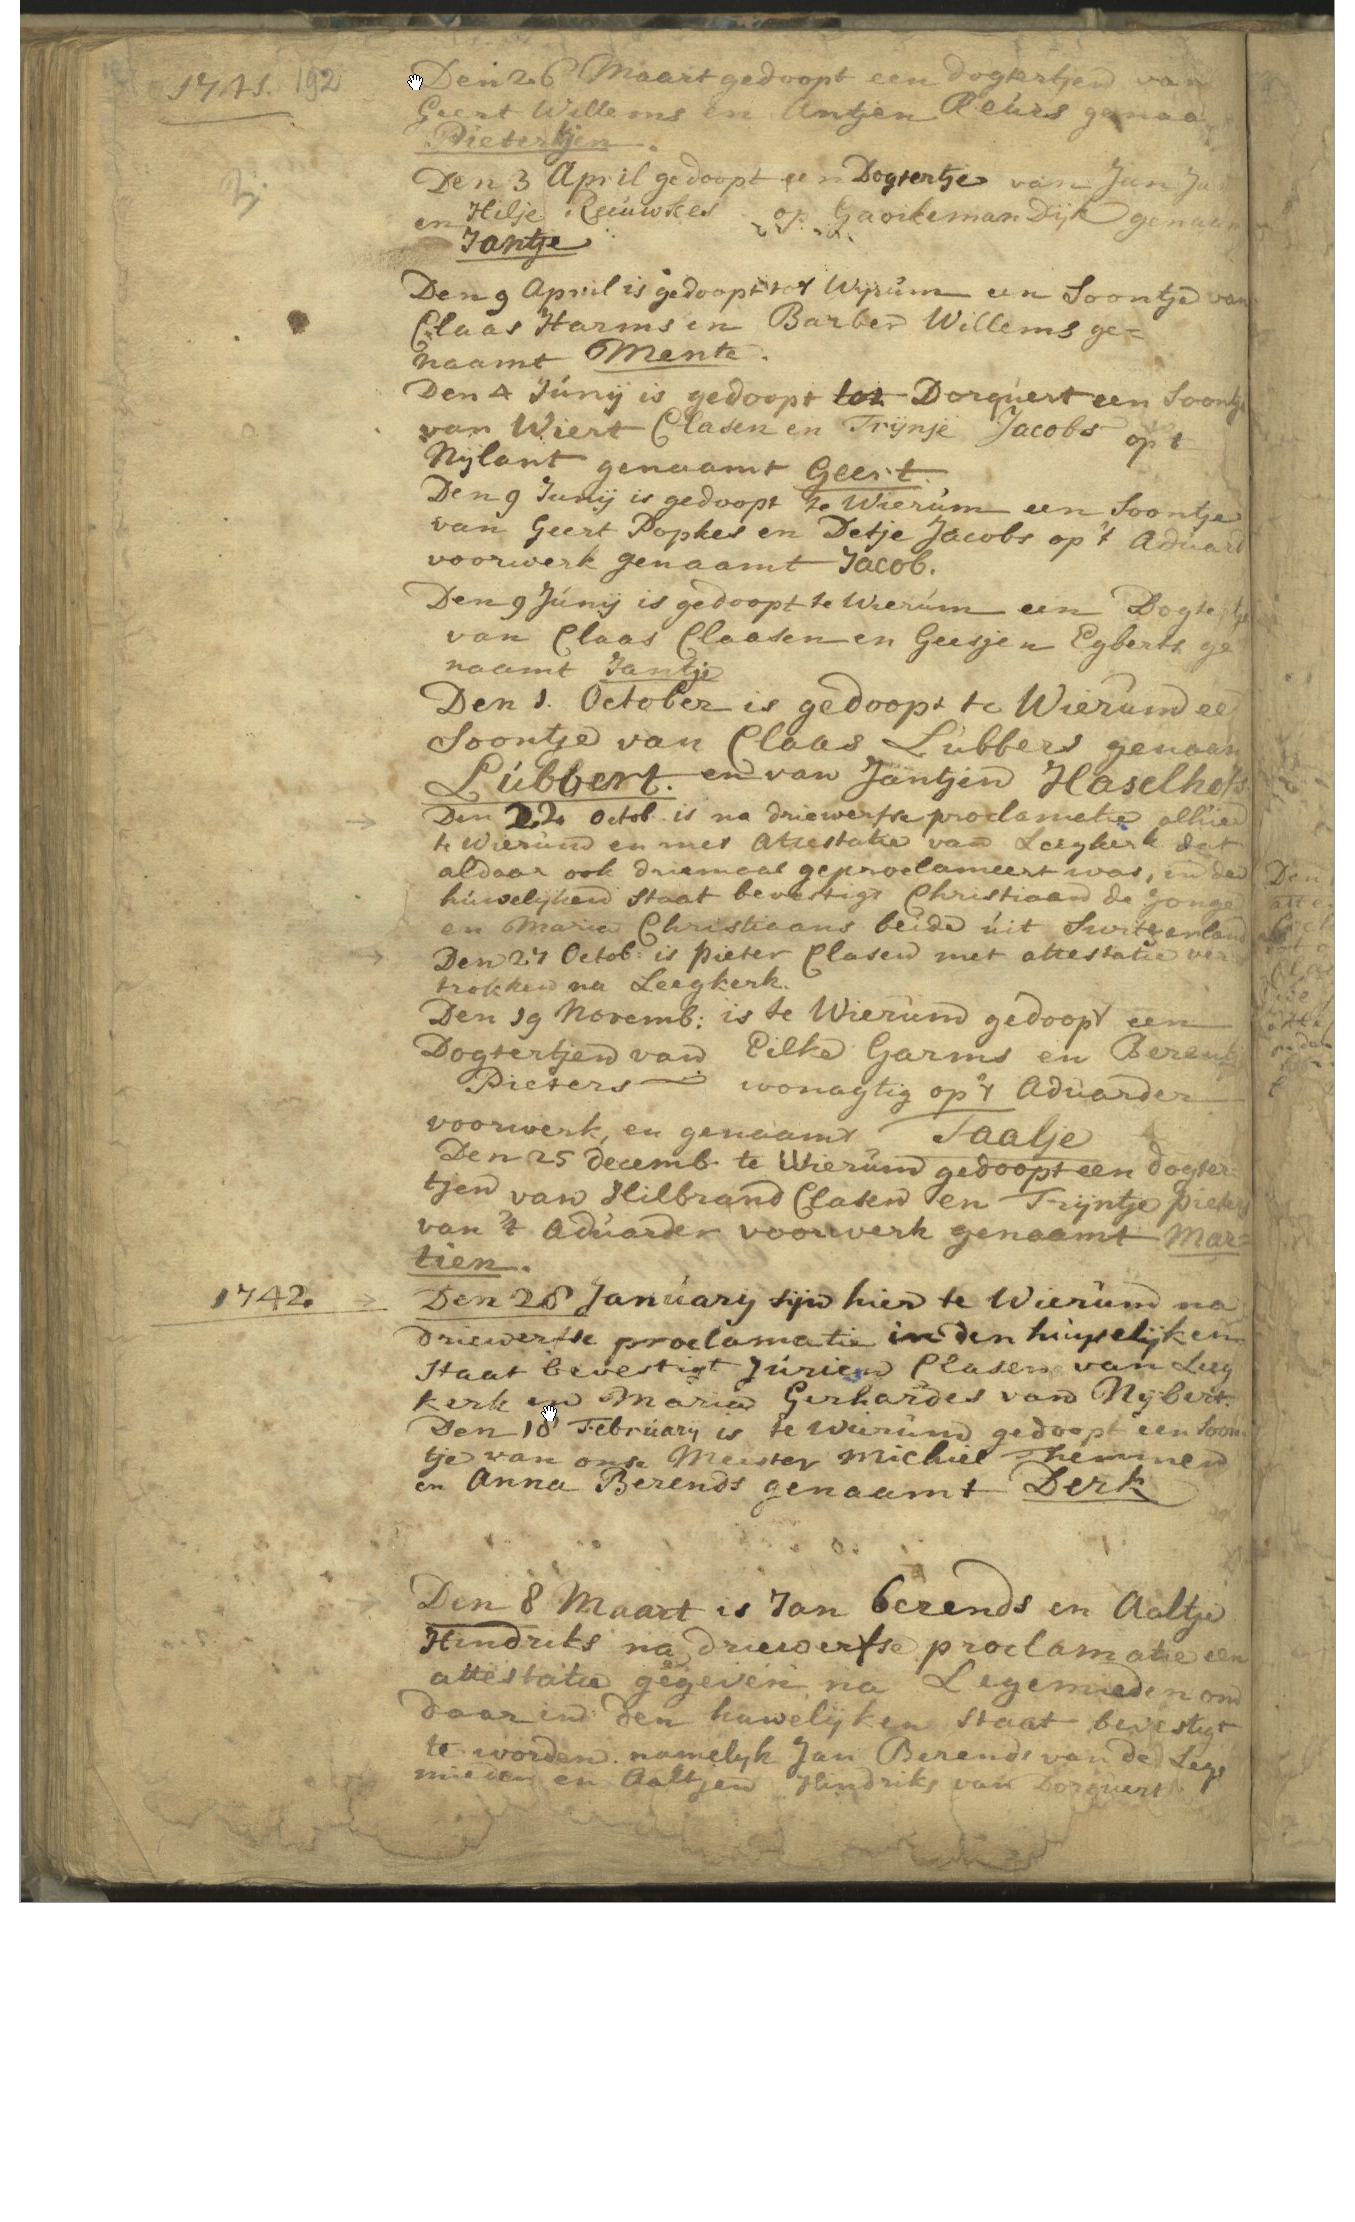 1741. 192
Den 26 Maart gedoopt een dogtertjen van
Geert Willems en Antjen Reurs genaa
Pietertjen.
Den 3 April gedoopt een Dogtertje van Jan Jan
en Hilje Reeuwkes op Gaaikeman Dijk genaam
Jantje
Den 9 April is gedoopt tot Wijrum een Soontje van
Claas Harms en Barber Willems ge=
naamt Mente.
Den 4 Júnij is gedoopt tot Dorquert een Soontje
van Wiert Clasen en Trijnje Jacobs op t
Nijlant genaamt Geert.
Den 9 Junij is gedoopt te Wierúm een Soontje
van Geert Popkes en Detje Jacobs op 't Aduard
voorwerk genaamt Jacob.
Den 9 Júnij is gedoopt te Wierúm een Dogtertje
van Claas Claasen en Geesjen Egberts ge
naamt Jantje
Den 1. October is gedoopt te Wierúm ee
Soontje van Claas Lubbers genaam
Lúbbert. en van Jantjen Haselhofs
Den 22 Octob. is na driewerfse proclamatie alhier
te Wierúm en met attestatie van Leegkerk dat
aldaar ook driemaal geproclameert was, in den
húwelijken staat bevestigt Christiaan de Jonge
en Maria Christiaans beide úit Switzerland
Den 27 Octob: is Pieter Clasen met attestatie ver
trokken na Leegkerk.
Den 19 Novemb: is te Wierúm gedoopt een
Dogtertjen van Eilke Garms en Berentje
Pieters wonagtig op 't Aduarder
voorwerk, en genaamt Taalje
Den 25 decemb. te Wierúm gedoopt een dogter=
tjen van Hilbrand Clasen en Trijntje Pieters
van 't Adúarder voorwerk genaamt Mar=
tien.
1742.
Den 28 Janúary sijn hier te Wierúm na
driewerfse proclamatie in den húwelijken
Staat bevestigt Júrien Clasen van Leeg
kerk en Maria Gerhardes van Nijbert.
Den 18 Februarij is te Wierúm gedoopt een Soon
tje van onse Meester Michiel Themmen
en Anna Berends genaamt Derk
Den 8 Maart is Jan Berends en Aaltje
Hindriks na driewerfse proclamatie een
attestatie gegeven na Legemieden om
daar in den huwelijken staat bevestigt
te worden. namelyk Jan Berends van de Lege
mieden en Aaltjen Hindriks van Dorquert